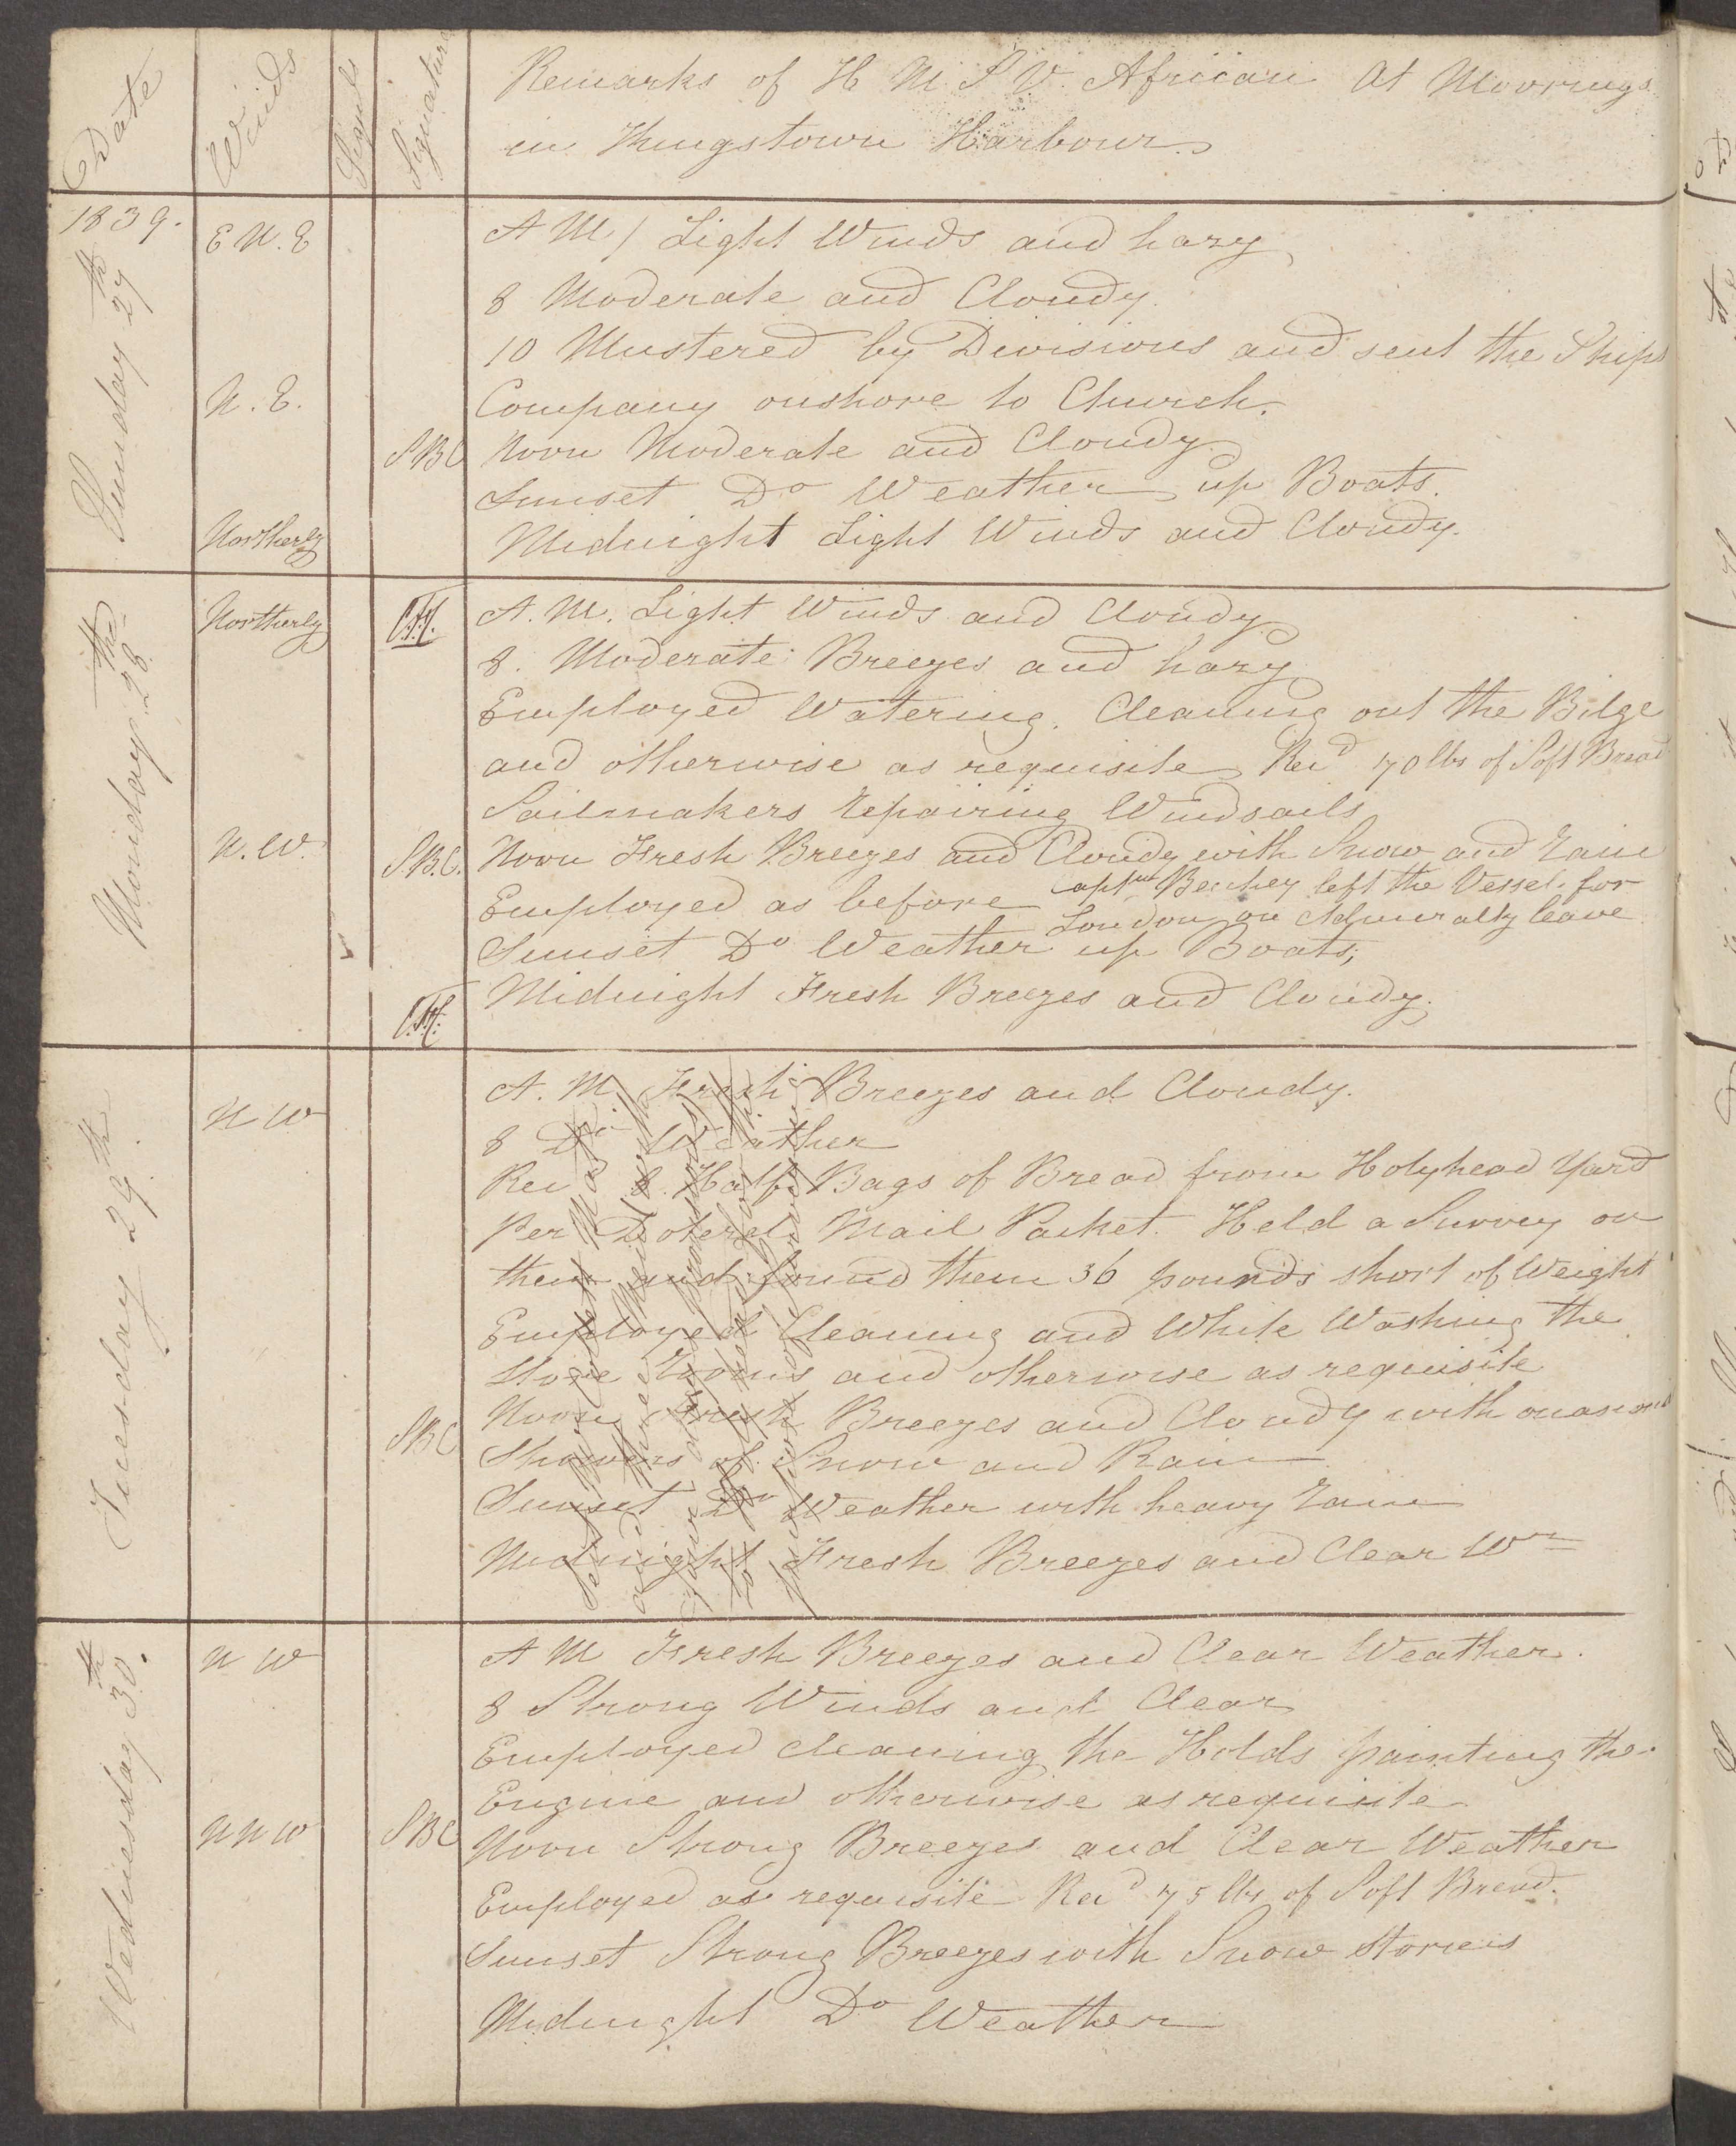 Date
Winds
Signls
Signature
Remarks of H M S V. African At Moorings
in Kingstown Harbour
1839.
Sunday 27th
E N. E
A M / Light Winds and hazy
8 Moderate and Cloudy.
10 Mustered by Divisions and sent the Ships
N. E.
Company onshore to Church.
S B C
Noon Moderate and Cloudy
Sunset Do Weather up Boats.
Northerly
Midnight Light Winds and Cloudy.
Monday 28th
Northerly
A. M. Light Winds and Cloudy
8. Moderate Breezes and hazy
Employed Watering. Cleaning out the Bilge
and otherwise as requisite Recd 70 lbs of Soft Bread
Sailmakers repairing Windsails
N. W.
S. B. C.
Noon Fresh Breezes and Cloudy with Snow and rain
Employed as before Beechey left the Vessel for
London on Admiralty leave
Sunset Do Weather up Boats;
Midnight Fresh Breezes and Cloudy.
Tuesday 29th
N W
A. M. Fresh Breezes and Cloudy.
8 Do Weather
Recd 8. Half Bags of Bread from Holyhead Yard
Per Doterel Mail Packet. Held a Survey on
them and found them 36 pounds short of Weight
Employed Cleaning and White Washing the
Store Rooms and otherwise as requisite
S B C
Noon Fresh Breezes and Cloudy with occasional
Showers of Snow and Rain
Sunset Do Weather with heavy rain
Midnight Fresh Breezes and Clear Wr
and three
four
to Holyhead
Wednesday 30th.
N W
A M Fresh Breezes and Clear Weather.
8 Strong Winds and Clear
Employed cleaning the Holds painting the
Engine and otherwise as requisite
N N W
S B C
Noon Strong Breezes and Clear Weather
Employed as requisite Recd 75 lbs of Soft Bread.
Sunset Strong Breezes with Snow storms
Midnight Do Weather